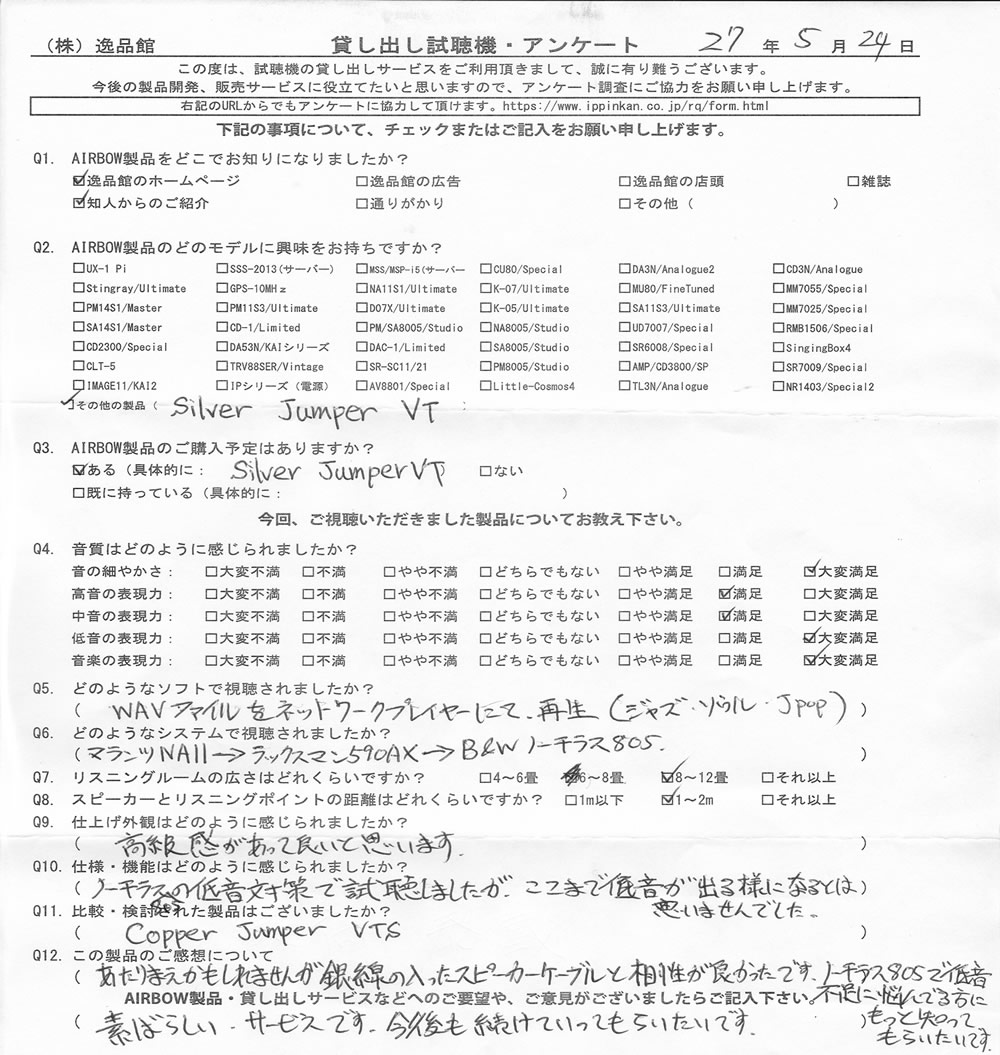 (株)逸品館 貸し出し試聴機・アンケート 27 年 5 月 24 日
この度は、試聴機の貸し出しサービスをご利用頂きまして、誠に有り難うございます。
今後の製品開発、販売サービスに役立てたいと思いますので、アンケート調査にご協力をお願い申し上げます。
右記のURLからでもアンケートに協力して頂けます。https://www.ippinkan.co.jp/rq/form.html
下記の事項について、チェックまたはご記入をお願い申し上げます。
Q1. AIRBOW製品をどこでお知りになりましたか?
☑逸品館のホームページ □逸品館の広告 □逸品館の店頭 □雑誌
☑知人からのご紹介 □通りがかり □その他( )
Q2. AIRBOW製品のどのモデルに興味をお持ちですか?
□UX-1 Pi □SSS-2013(サーバー) □MSS/MSP-i5(サーバー □CU80/Special □DA3N/Analogue2 □CD3N/Analogue
□Stingray/Ultimate □GPS-10MHz □NA11S1/Ultimate □K-07/Ultimate □MU80/FineTuned □MM7055/Special
□PM14S1/Master □PM11S3/Ultimate □D07X/Ultimate □K-05/Ultimate □SA11S3/Ultimate □MM7025/Special
□SA14S1/Master □CD-1/Limited □PM/SA8005/Studio □NA8005/Studio □UD7007/Special □RMB1506/Special
□CD2300/Special □DA53N/KAIシリーズ □DAC-1/Limited □SA8005/Studio □SR6008/Special □SingingBox4
□CLT-5 □TRV88SER/Vintage □SR-SC11/21 □PM8005/Studio □AMP/CD3800/SP □SR7009/Special
□IMAGE11/KAI2 □IPシリーズ(電源) □AV8801/Special □Little-Cosmos4 □TL3N/Analogue □NR1403/Special2
☑その他の製品( Silver Jumper VT
Q3. AIRBOW製品のご購入予定はありますか?
☑ある(具体的に: Silver Jumper VT) □ない
□既に持っている(具体的に: )
今回、ご視聴いただきました製品についてお教え下さい。
Q4. 音質はどのように感じられましたか?
音の細やかさ: □大変不満 □不満 □やや不満 □どちらでもない □やや満足 □満足 ☑大変満足
高音の表現力: □大変不満 □不満 □やや不満 □どちらでもない □やや満足 ☑満足 □大変満足
中音の表現力: □大変不満 □不満 □やや不満 □どちらでもない □やや満足 ☑満足 □大変満足
低音の表現力: □大変不満 □不満 □やや不満 □どちらでもない □やや満足 □満足 ☑大変満足
音楽の表現力: □大変不満 □不満 □やや不満 □どちらでもない □やや満足 □満足 ☑大変満足
Q5. どのようなソフトで視聴されましたか?
( WAVファイルをネットワークプレイヤーにて、再生(ジャズ・ソウル・Jpop) )
Q6. どのようなシステムで視聴されましたか?
(マランツNA11→ラックスマン590AX→B&Wノーチラス805. )
Q7. リスニングルームの広さはどれくらいですか? □4~6畳 6~8畳 ☑8~12畳 □それ以上
Q8. スピーカーとリスニングポイントの距離はどれくらいですか? □1m以下 ☑1~2m □それ以上
Q9. 仕上げ外観はどのように感じられましたか?
( 高級感があって良いと思います. )
Q10. 仕様・機能はどのように感じられましたか?
(ノーチラス805の低音対策で試聴しましたが、ここまで低音が出る様になるとは)
思いませんでした。
Q11. 比較・検討された製品はございましたか?
( Copper Jumper VTS )
Q12. この製品のご感想について
( あたりまえかもしれませんが銀線の入ったスピーカーケーブルと相性が良かったです. ノーチラス805で低音
不足に悩んでる方に
もっと知って
もらいたいです.
AIRBOW製品・貸し出しサービスなどへのご要望や、ご意見がございましたらご記入下さい。
( 素ばらしい、サービスです. 今後も続けていってもらいたいです. )